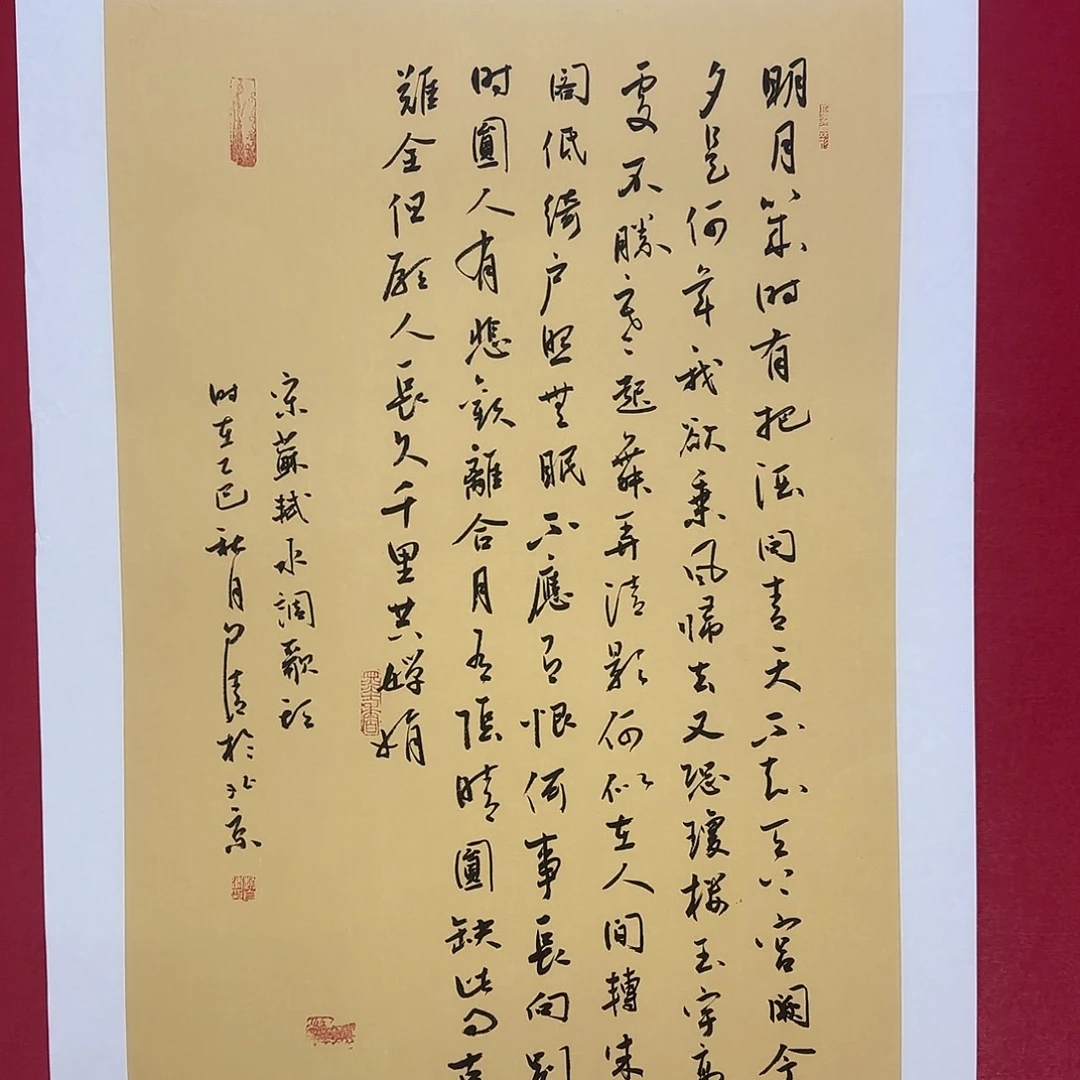 明月幾時有把酒問青天不知天上宮闕今
夕是何年我欲乘風歸去又恐瓊樓玉宇高
處不勝寒起舞弄清影何似在人間轉朱
閣低綺戶照無眠不應有恨何事長向別
時圓人有悲歡離合月有陰晴圓缺此事古
難全但願人長久千里共嬋娟
宋蘇軾水調歌頭
时在乙巳秋月清於北京